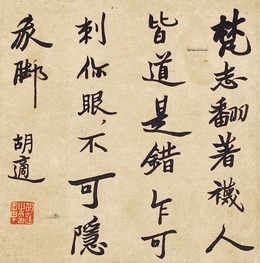 梵志翻著襪人
皆道是錯乍可
刺你眼，不可隱
我脚
胡適